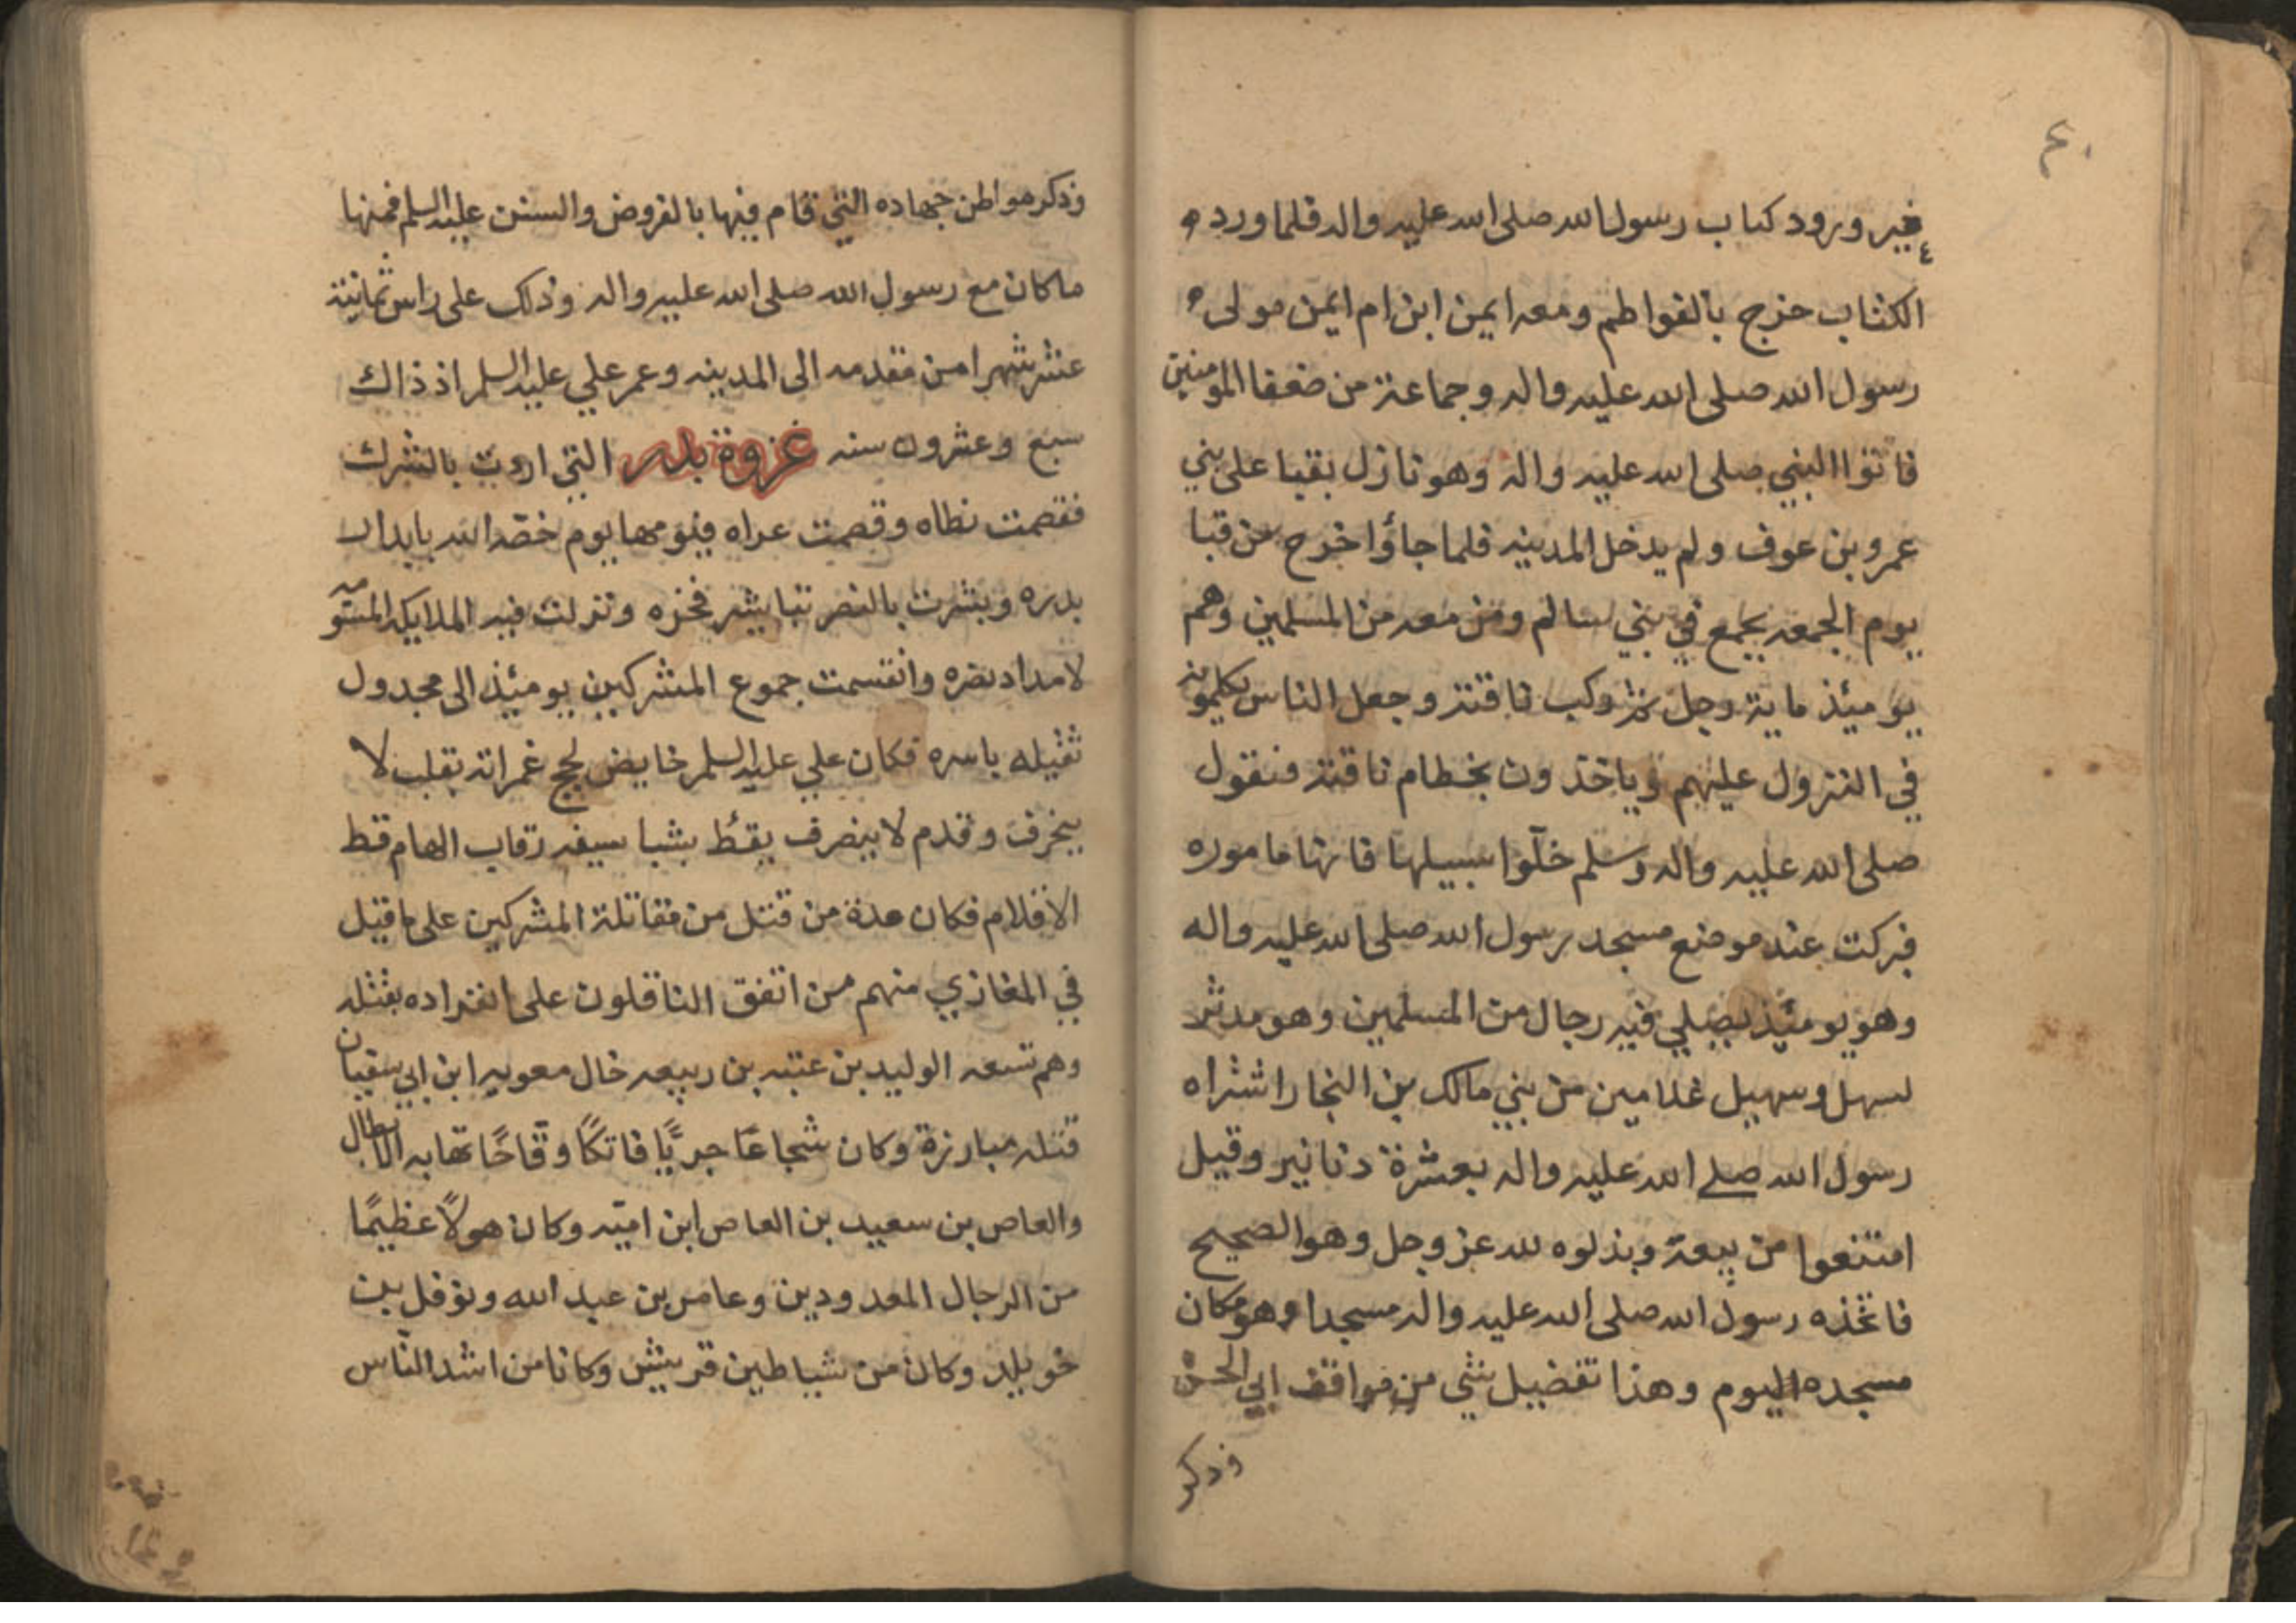 ٤٠
غير ورود كتاب رسول الله صلى الله عليه واله فلما ورده
الكتاب خرج بالفواطم ومعه ايمن ابن ام ايمن مولى
رسول الله صلى الله عليه واله وجماعة من ضعفا المومنين
فاتوا النبي صلى الله عليه واله وهو نازل بقبا على بني
عمرو بن عوف ولم يدخل المدينه فلما جاؤا خرج من قبا
يوم الجمعه يجمع في بني سالم ومن معه من المسلمين وهم
يومئذ ماية رجل ثم ركب ناقته وجعل الناس يكلمونه
في النزول عليهم وياخذون بخطام ناقته فيقول
صلى الله عليه واله وسلم خلّوا سبيلها فانها ماموره
فبركت عند موضع مسجد رسول الله صلى الله عليه واله
وهو يومئذ يصلي فيه رجال من المسلمين وهو مدثر
لسهل وسهيل غلامين من بني مالك بن النجار اشتراه
رسول الله صلى الله عليه واله بعشرة دنانير وقيل
امتنعوا من بيعه وبذلوه لله عز وجل وهو الصحيح
فاتخذه رسول الله صلى الله عليه واله مسجدا وهو مكان
مسجده اليوم وهذا تفضيل شي من مواقف ابي الحسن
وذكر
وذكر مواطن جهاده التي قام فيها بالفروض والسنن عليه السلم فمنها
ما كان مع رسول الله صلى الله عليه واله وذلك على راس ثمانية
عشر شهرا من مقدمه الى المدينه وعمر علي عليه السلم اذ ذاك
سبع وعشرون سنه غزوة بدر التي اروت بالشرك
فقصمت نطاه وقصمت عراه فيومها يوم خصّه الله بابدار
بدره وبشرت بالنصر تباشير فخره وتنزلت فيه الملايكه المسومه
لامداد نصره وانقسمت جموع المشركين يومئذ الى مجدول
ثقيله باسره فكان علي عليه السلم خايض لجج غمراته بقلب لا
ينخرف وقدم لا ينصرف يقط بشبا سيفه رقاب الهام قط
الاقلام فكان عدة من قتل من مقاتلة المشركين على ما قيل
في المغازي منهم من اتفق الناقلون على انفراده بقتله
وهم تسعه الوليد بن عتبه بن ربيعه خال معويه ابن ابي سفيان
قتله مبارزة وكان شجاعًا جريًّا فاتكًا وقّاحًا تهابه الابطال
والعاص بن سعيد بن العاص ابن اميّه وكان هولًا عظيمًا
من الرجال المعدودين وعامر بن عبد الله ونوفل بن
خويلد وكان من شياطين قريش وكانا من اشد النّاس